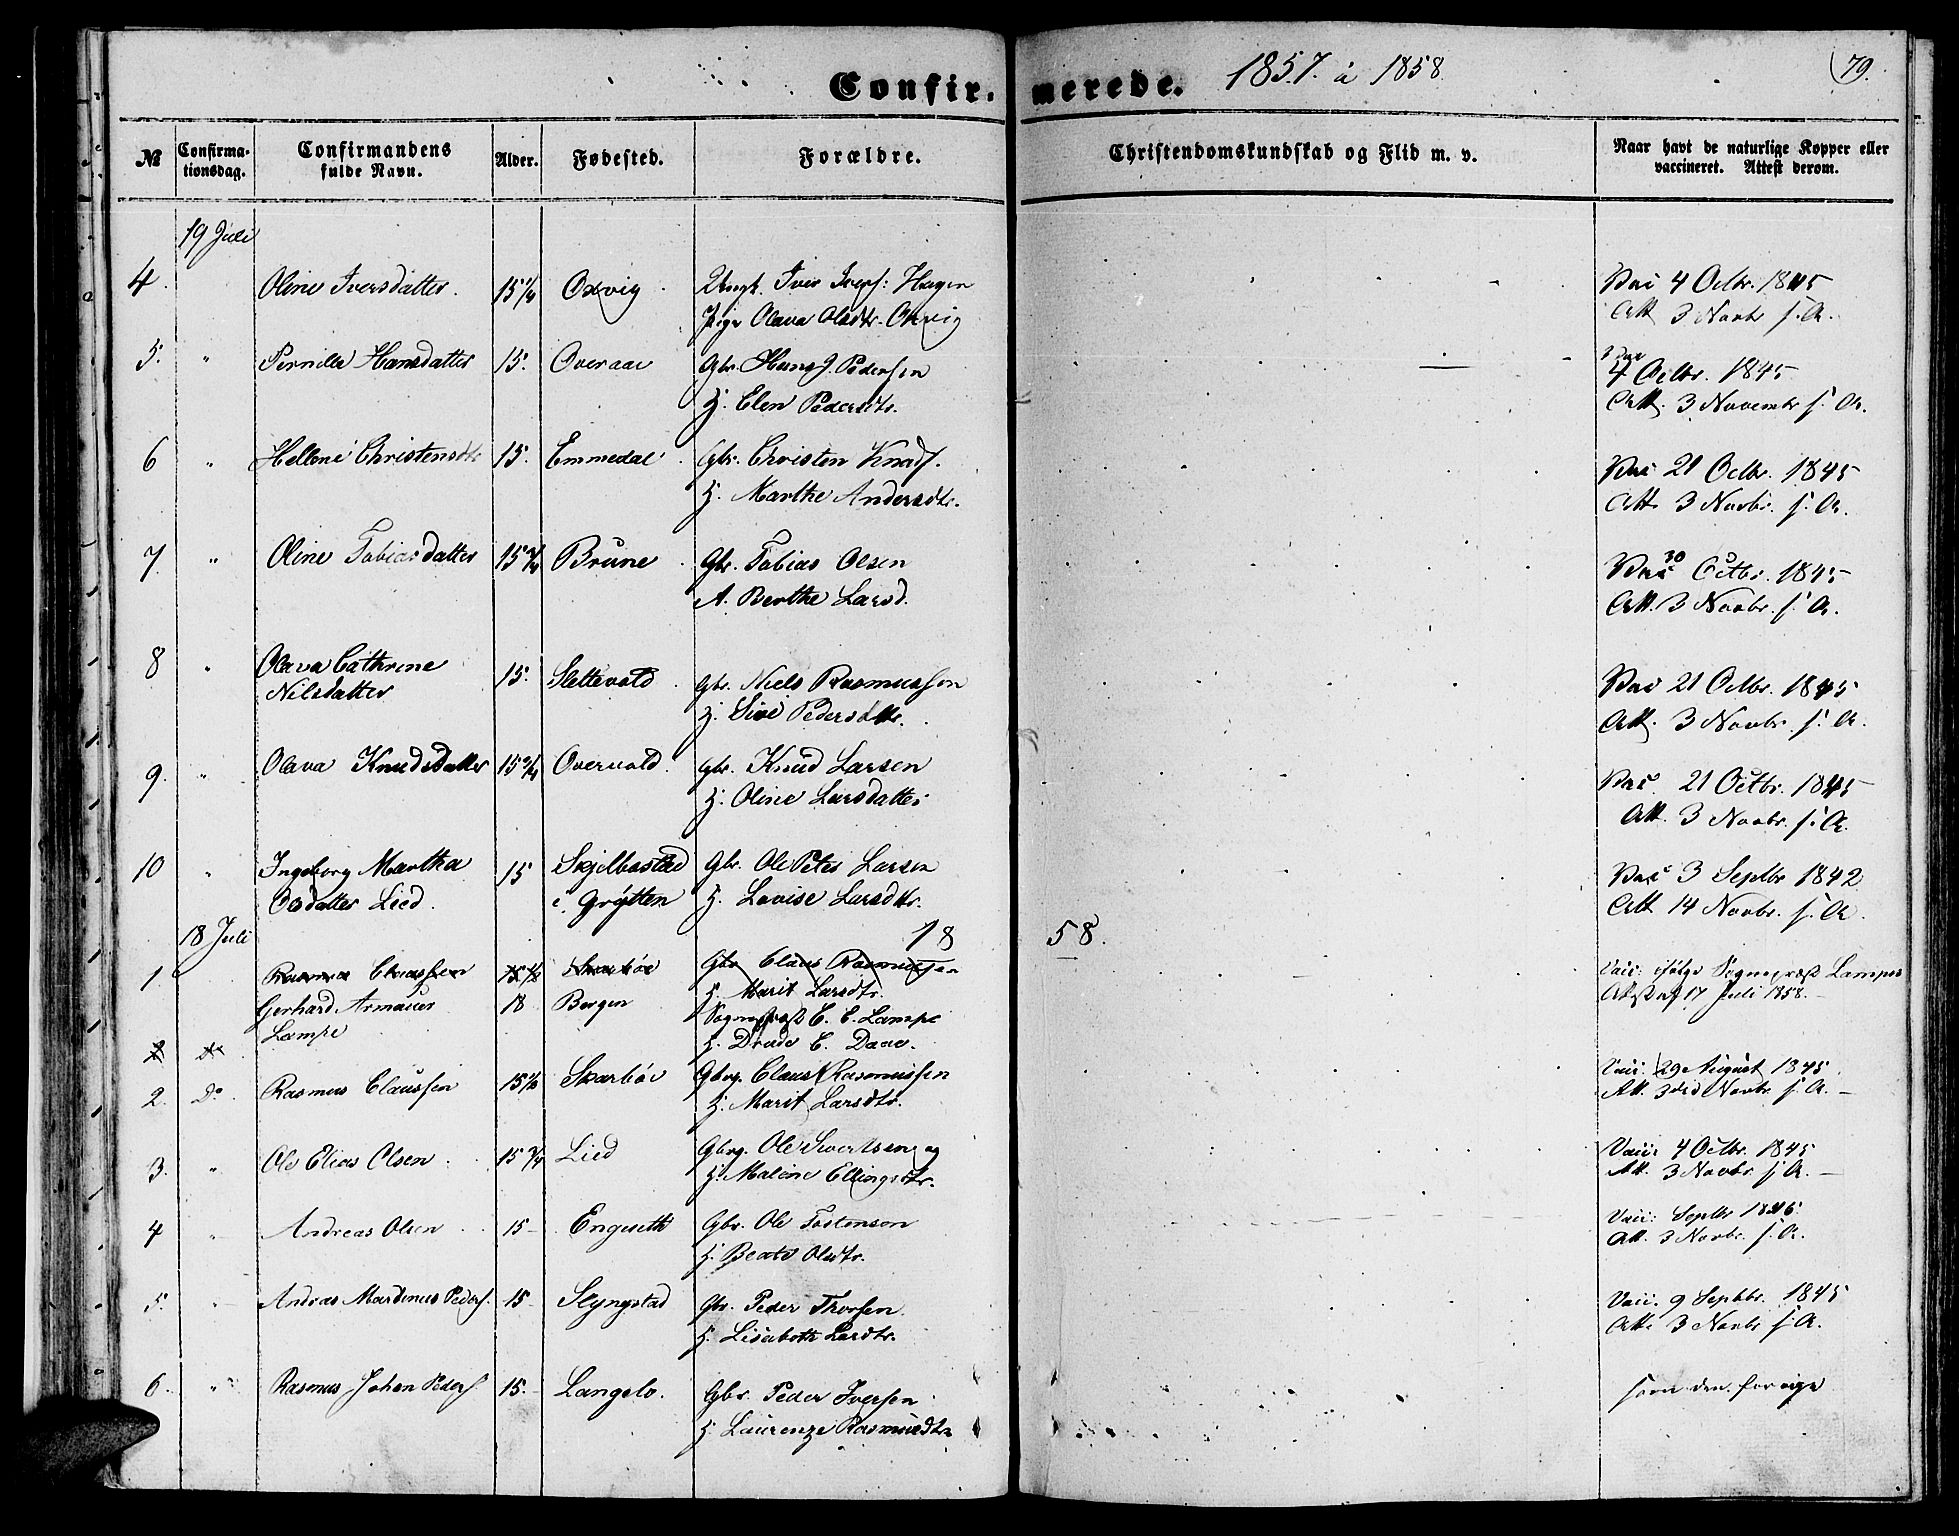 Confirmerede. 1857. à 1858. 79.
No
Confirmationsdag.
Confirmandens fulde Navn.
Alder.
Fødested.
Forældre.
Christendomskundskab og Flid m. v.
Naar havt de naturlige Kopper eller vaccineret. Attest derom.
19 Juli
4. Oline Iversdatter. 15 1/4 Oxvig Ungk. Iver Iver: Hagen Vac 4 Octbr. 1845
Pige Olava Olsdtr. Oxvig Att 3 Novbr s. A.
5. " Pernille Hansdatter 15. Overaae Gbr. Hans J. Pedersen Vac 4 Octbr. 1845
H. Elen Pedersdtr. Att. 3 Novembr s. A.
6 " Hellene Christensdtr 15. Emmedal Gbr. Christen Knuds. Vac 21 Octbr. 1845
H. Marthe Andersdtr. Att 3 Novbr. s. A.
7. " Oline Tobiasdatter 15 3/4 Brune Gbr. Tobias Olsen Vac 30 Octbr. 1845
A. Berthe Larsd. Att. 3 Novbr. s. A.
8 " Olava Cathrine
Nilsdatter 15. Slettevold Gbr. Niels Rasmussen Vac 21 Octbr. 1845
H. Sive Pedersdttr. Att. 3 Novbr. s. A.
9. " Olava Knudsdatter 15 3/4 Overvold. Gbr. Knud Larsen Vac. 21 Octbr. 1845
H. Oline Larsdatter Att. 3 Novbr. s. A.
10 " Ingeborg Martha 15 Skjelbostad Gbr. Ole Peter Larsen Vac 3 Septbr 1842
Olsdatter Lied. i Grytten H. Lovise Larsdtr. Att 14 Novbr. s. A.
18 Juli 1858.
1. Rasmus Claussen 15 1/2 Skarbøe Gbr Claus Rasmussen Vacc: ifølge Sognepræst Lampes
H. Marit Larsdtr. Attest af 17 Juli 1858.
Gerhard Armauer 18 Bergen Sognepræst C. C. Lampe
Lampe H. Drude C. Daae.
2 do
2. Do Rasmus Claussen 15 1/2 Skarbøe Gbrg. Claus Rasmussen Vacc: 29 August 1845.
H. Marit Larsdtr. Att. 3die Novbr s. A.
3. " Ole Elias Olsen 15 3/4 Lied Gbrg. Ole Sivertsen og Vacc: 4 Octbr. 1845
H. Malene Ellingsdtr. Att. 3 Novbr s. A.
4 " Andreas Olsen 15 Engeseth Gbr. Ole Tostensen Vacc: Septbr 1846
H. Beate Olsdtr. Att. 3 Novbr. s. A.
5. " Andreas Martinus Peders. 15 Slyngstad Gbr. Peder Thorsen Vacc. 9 Septbr. 1845
H. Lisabeth Larsdtr. Att. 3 Novbr s. A.
6. " Rasmus Johan Peders. 15. Langelo. Gbr. Peder Iversen som den forrige
H. Laurenze Rasmusdtr